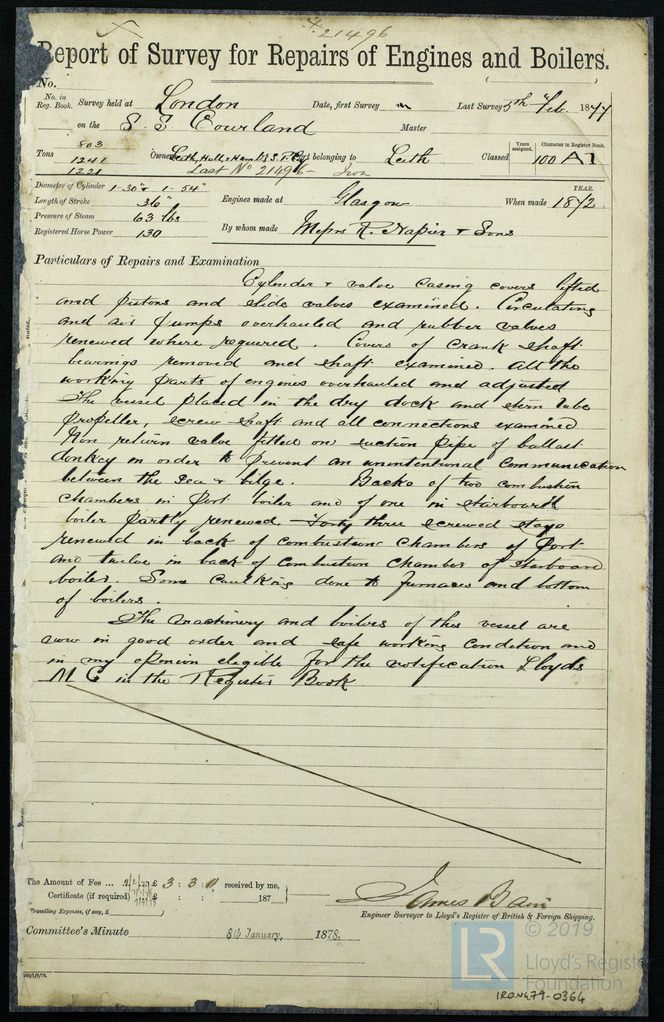 21496
Report of Survey for Repairs of Engines and Boilers.
No.
No. in Reg. Book. Survey held at London Date, first Survey Last Survey 5th Feb. 1877
on the S. S. Courland Master
Tons 803 1241 1221 Owners Leith, Hull & Hambg S. P. Co Port belonging to Leith Classed Years assigned. 100 Character in Register Book. A1
Last No 21496 Iron
Diameter of Cylinder 1-30" 1-54"
Length of Stroke 36" Engines made at Glasgow When made YEAR. 1872
Pressure of Steam 63 lbs
Registered Horse Power 130 By whom made Messrs R. Napier & Sons
Particulars of Repairs and Examination
Cylinder & valve casing covers lifted
and pistons and slide valves examined. Circulating
and air pumps overhauled and rubber valves
renewed where required. Covers of crank shaft
bearings removed and shaft examined. All the
working parts of engines overhauled and adjusted
The vessel placed in the dry dock and stern tube
propeller, screw shaft and all connections examined
Non return valve fitted on suction pipe of ballast
donkey in order to prevent an unintentional communication
between the sea & bilge. Backs of two combustion
chambers in port boiler and of one in starboard
boiler partly renewed - Forty three screwed stays
renewed in back of combustion chambers of Port
and twelve in back of combustion chamber of starboard
boiler. Some caulking done to furnaces and bottom
of boilers.
The machinery and boilers of this vessel are
now in good order and safe working condition and
in my opinion eligible for the notification Lloyds
M C in the Register Book
The Amount of Fee ... £ 3 : 3 : 0 received by me,
Certificate (if required) £ : : 187
Travelling Expenses, if any, £
James Bain
Engineer Surveyor to Lloyd's Register of British & Foreign Shipping.
Committee's Minute 8th January, 1878.
© 2019
LR Lloyd's Register
Foundation
IRON479-0364